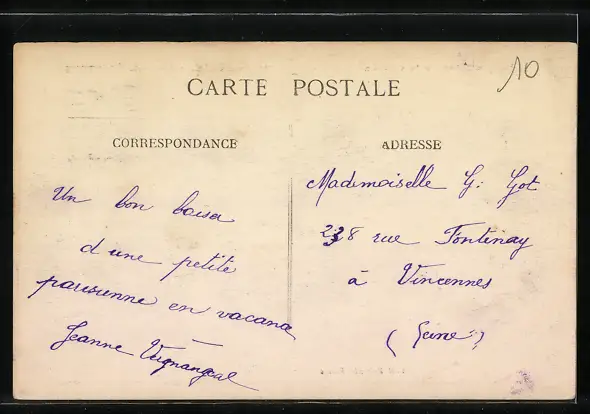 10
CARTE POSTALE
CORRESPONDANCE
ADRESSE
Un bon baiser
d une petite
parisienne en vacance
Jeanne
Mademoiselle G. Got
238 rue Fontenay
à Vincennes
(Seine)